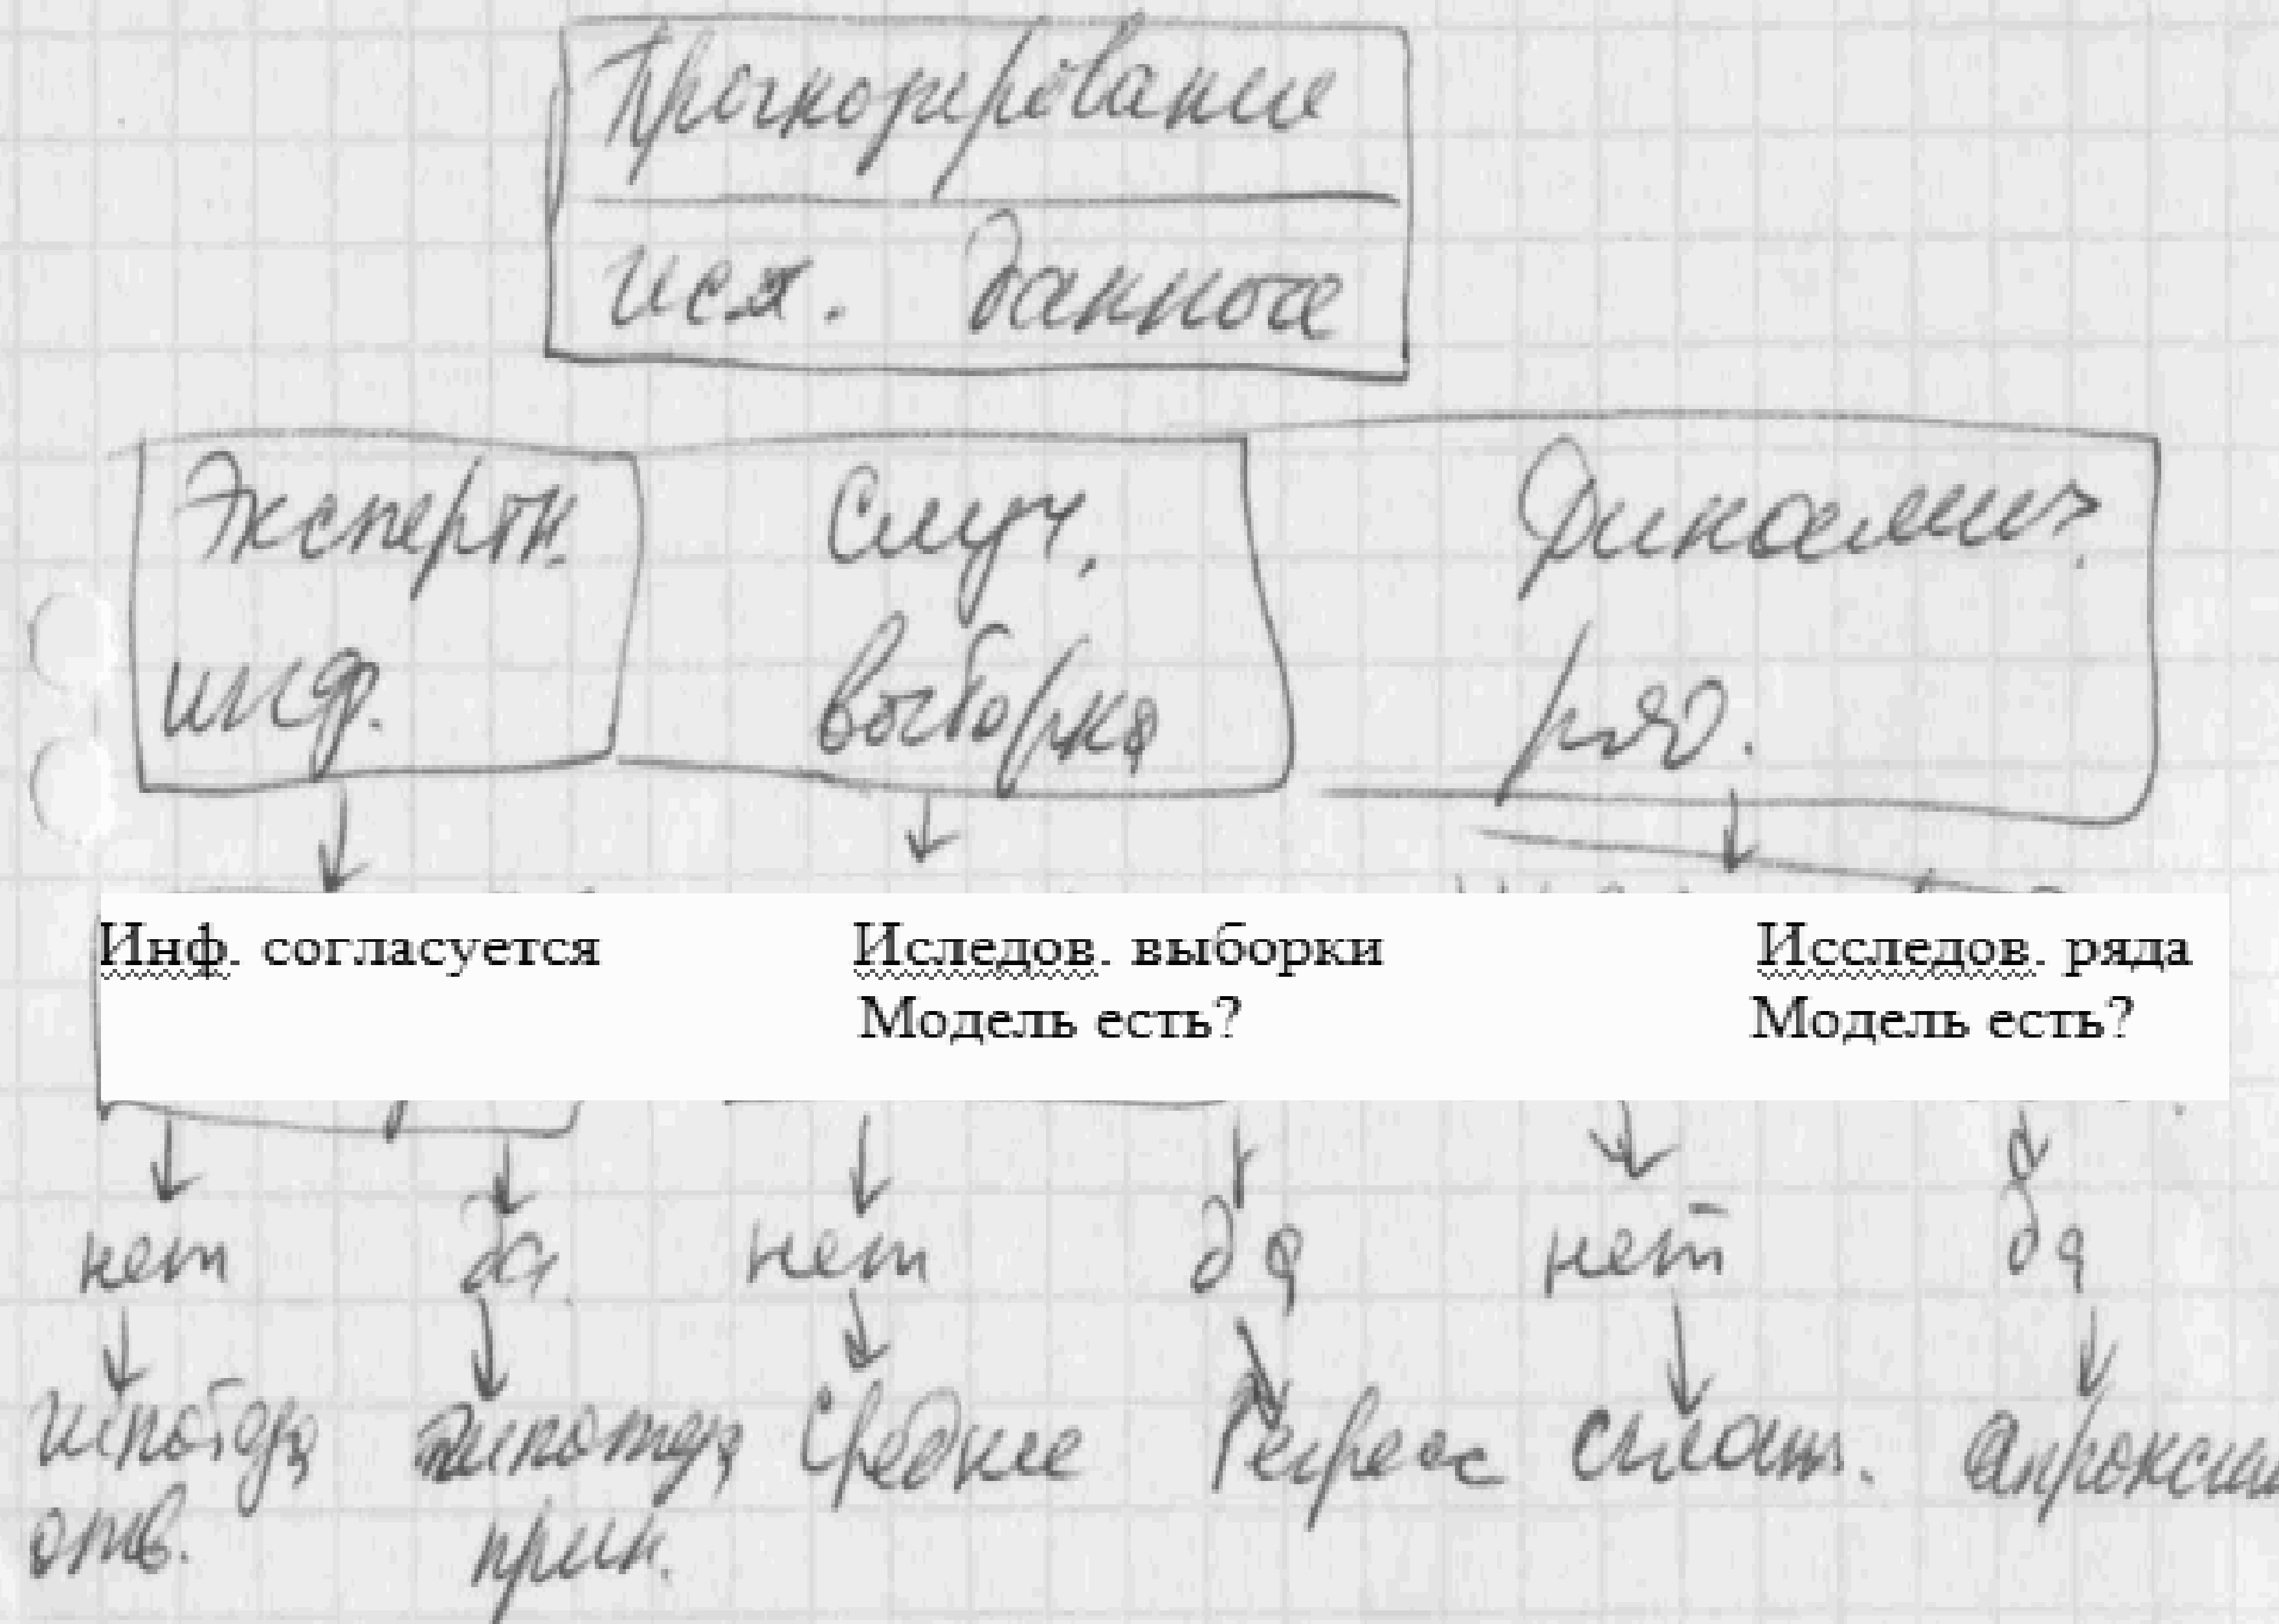 Прогнозирование
исх. данные
Эксперт. Случ. Динамич.
инф. выборка ряд.
Инф. согласуется Иследов. выборки Исследов. ряда
Модель есть? Модель есть?
нет да нет да нет да
гипотеза гипотеза Средние Регресс сглаж. апроксим
отв. прин.